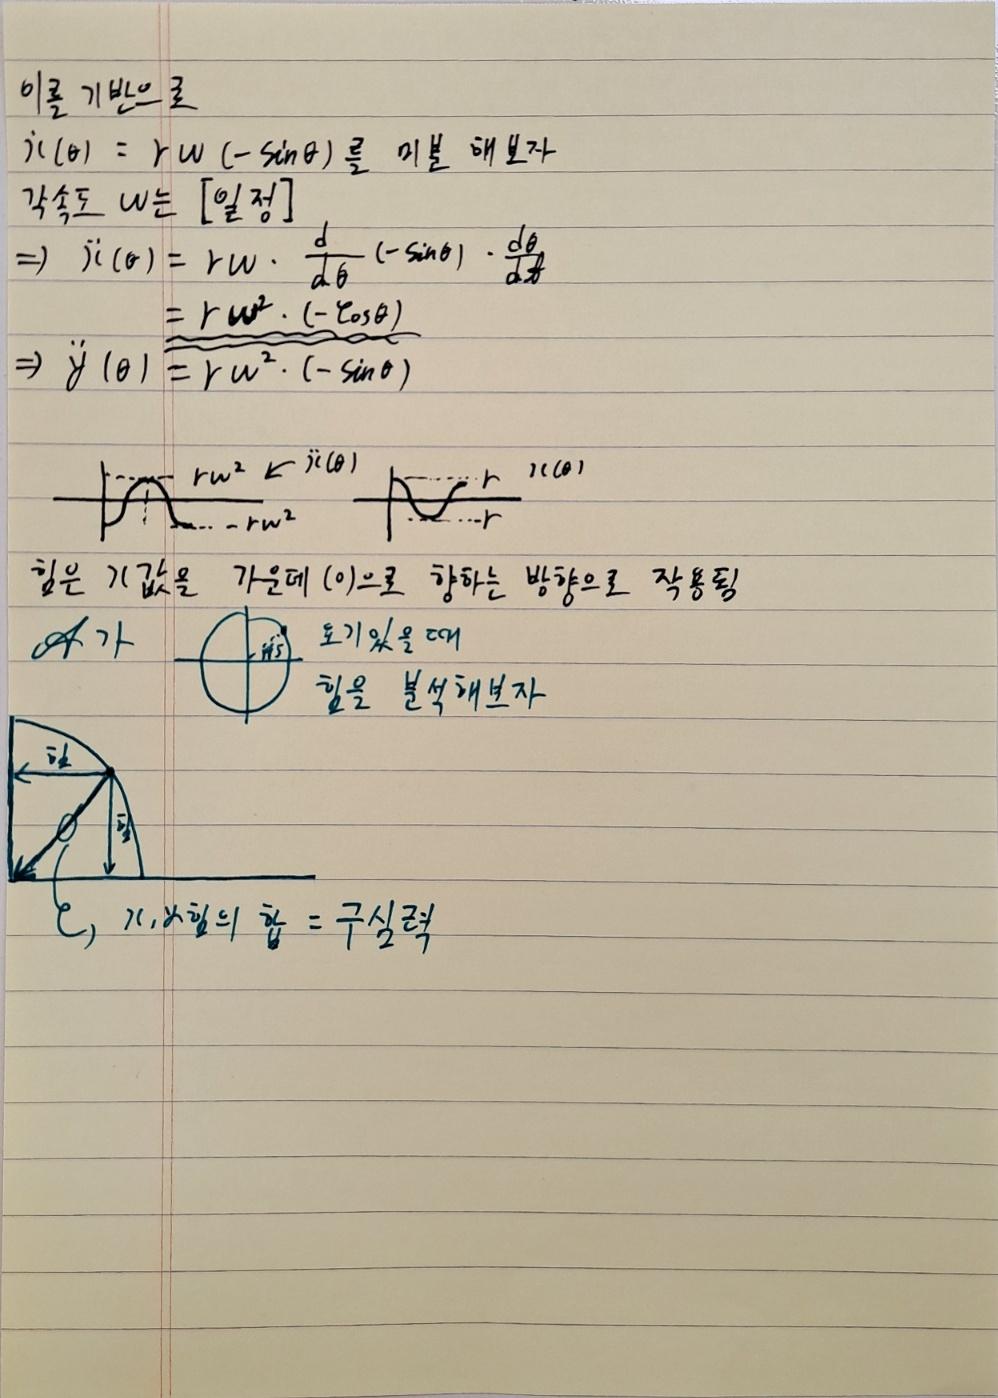 이를 기반으로
ẋ(θ) = rw(-sinθ)를 미분 해보자
각속도 w는 [일정]
⇒ ẍ(θ) = rw · d/dθ (-sinθ) · dθ/dt
= rw² · (-cosθ)
⇒ ÿ(θ) = rw² · (-sinθ)
rw² ← ẍ(θ) r x(θ)
-rw² -r
힘은 x값을 가운데(0)으로 향하는 방향으로 작용됨
A가 45 있을 때
힘을 분석해보자
힘
힘
x, y힘의 합 = 구심력